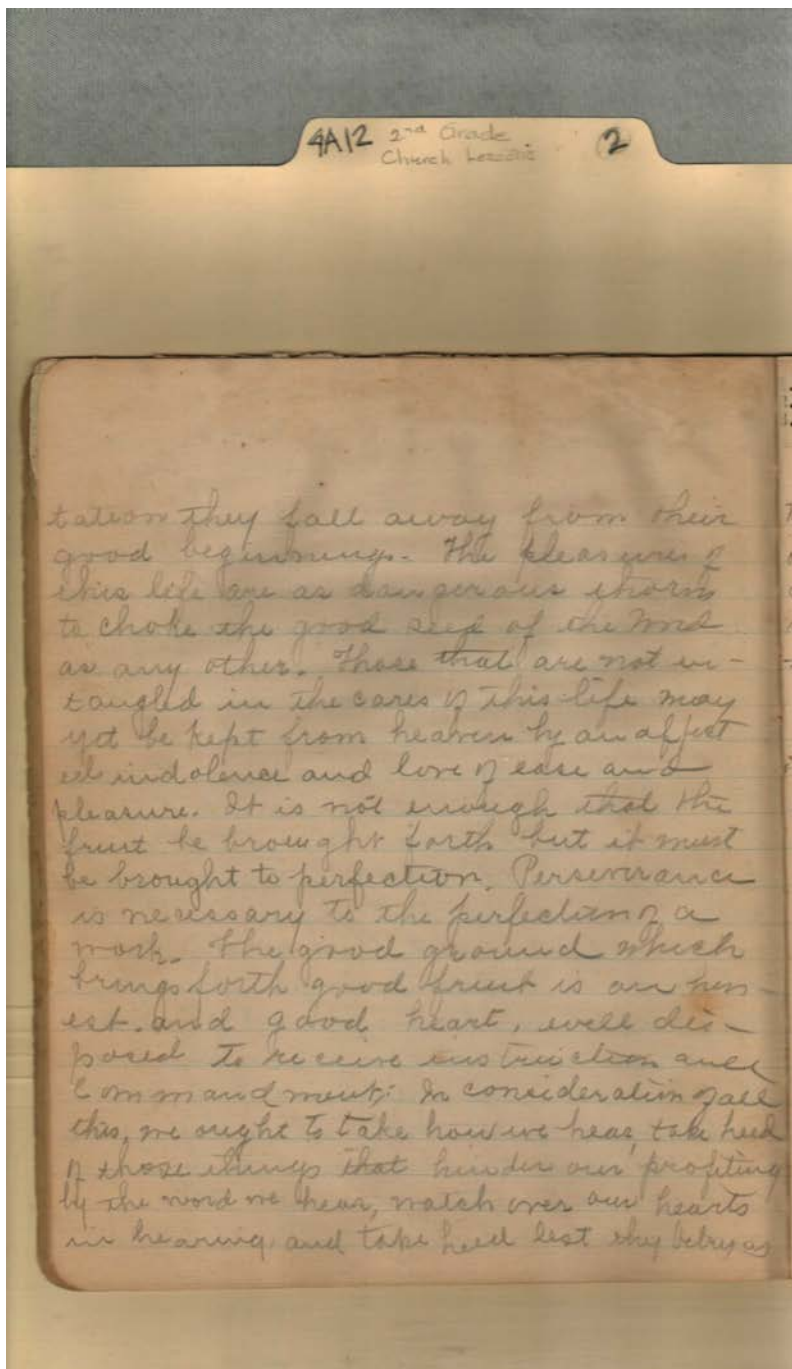 4A12 2nd Grade
Church Lessons
2
tation they fall away from their
good beginnings. The pleasures of
this life are as dangerous thorns
to choke the good seed of the Word
as any other. Those that are not in-
tangled in the cares of this life may
yet be kept from heaven by an affect
ed indolence and love of ease and
pleasure. It is not enough that the
fruit be brought forth but it must
be brought to perfection. Perseverance
is necessary to the perfection of a
work. The good ground which
brings forth good fruit is an hon-
est and good heart, well dis-
posed to receive instruction and
Commandment. In consideration of all
this, we ought to take how we hear, take heed
of those things that hinder our profiting
by the word we hear, watch over our hearts
in hearing and take heed lest they betray us